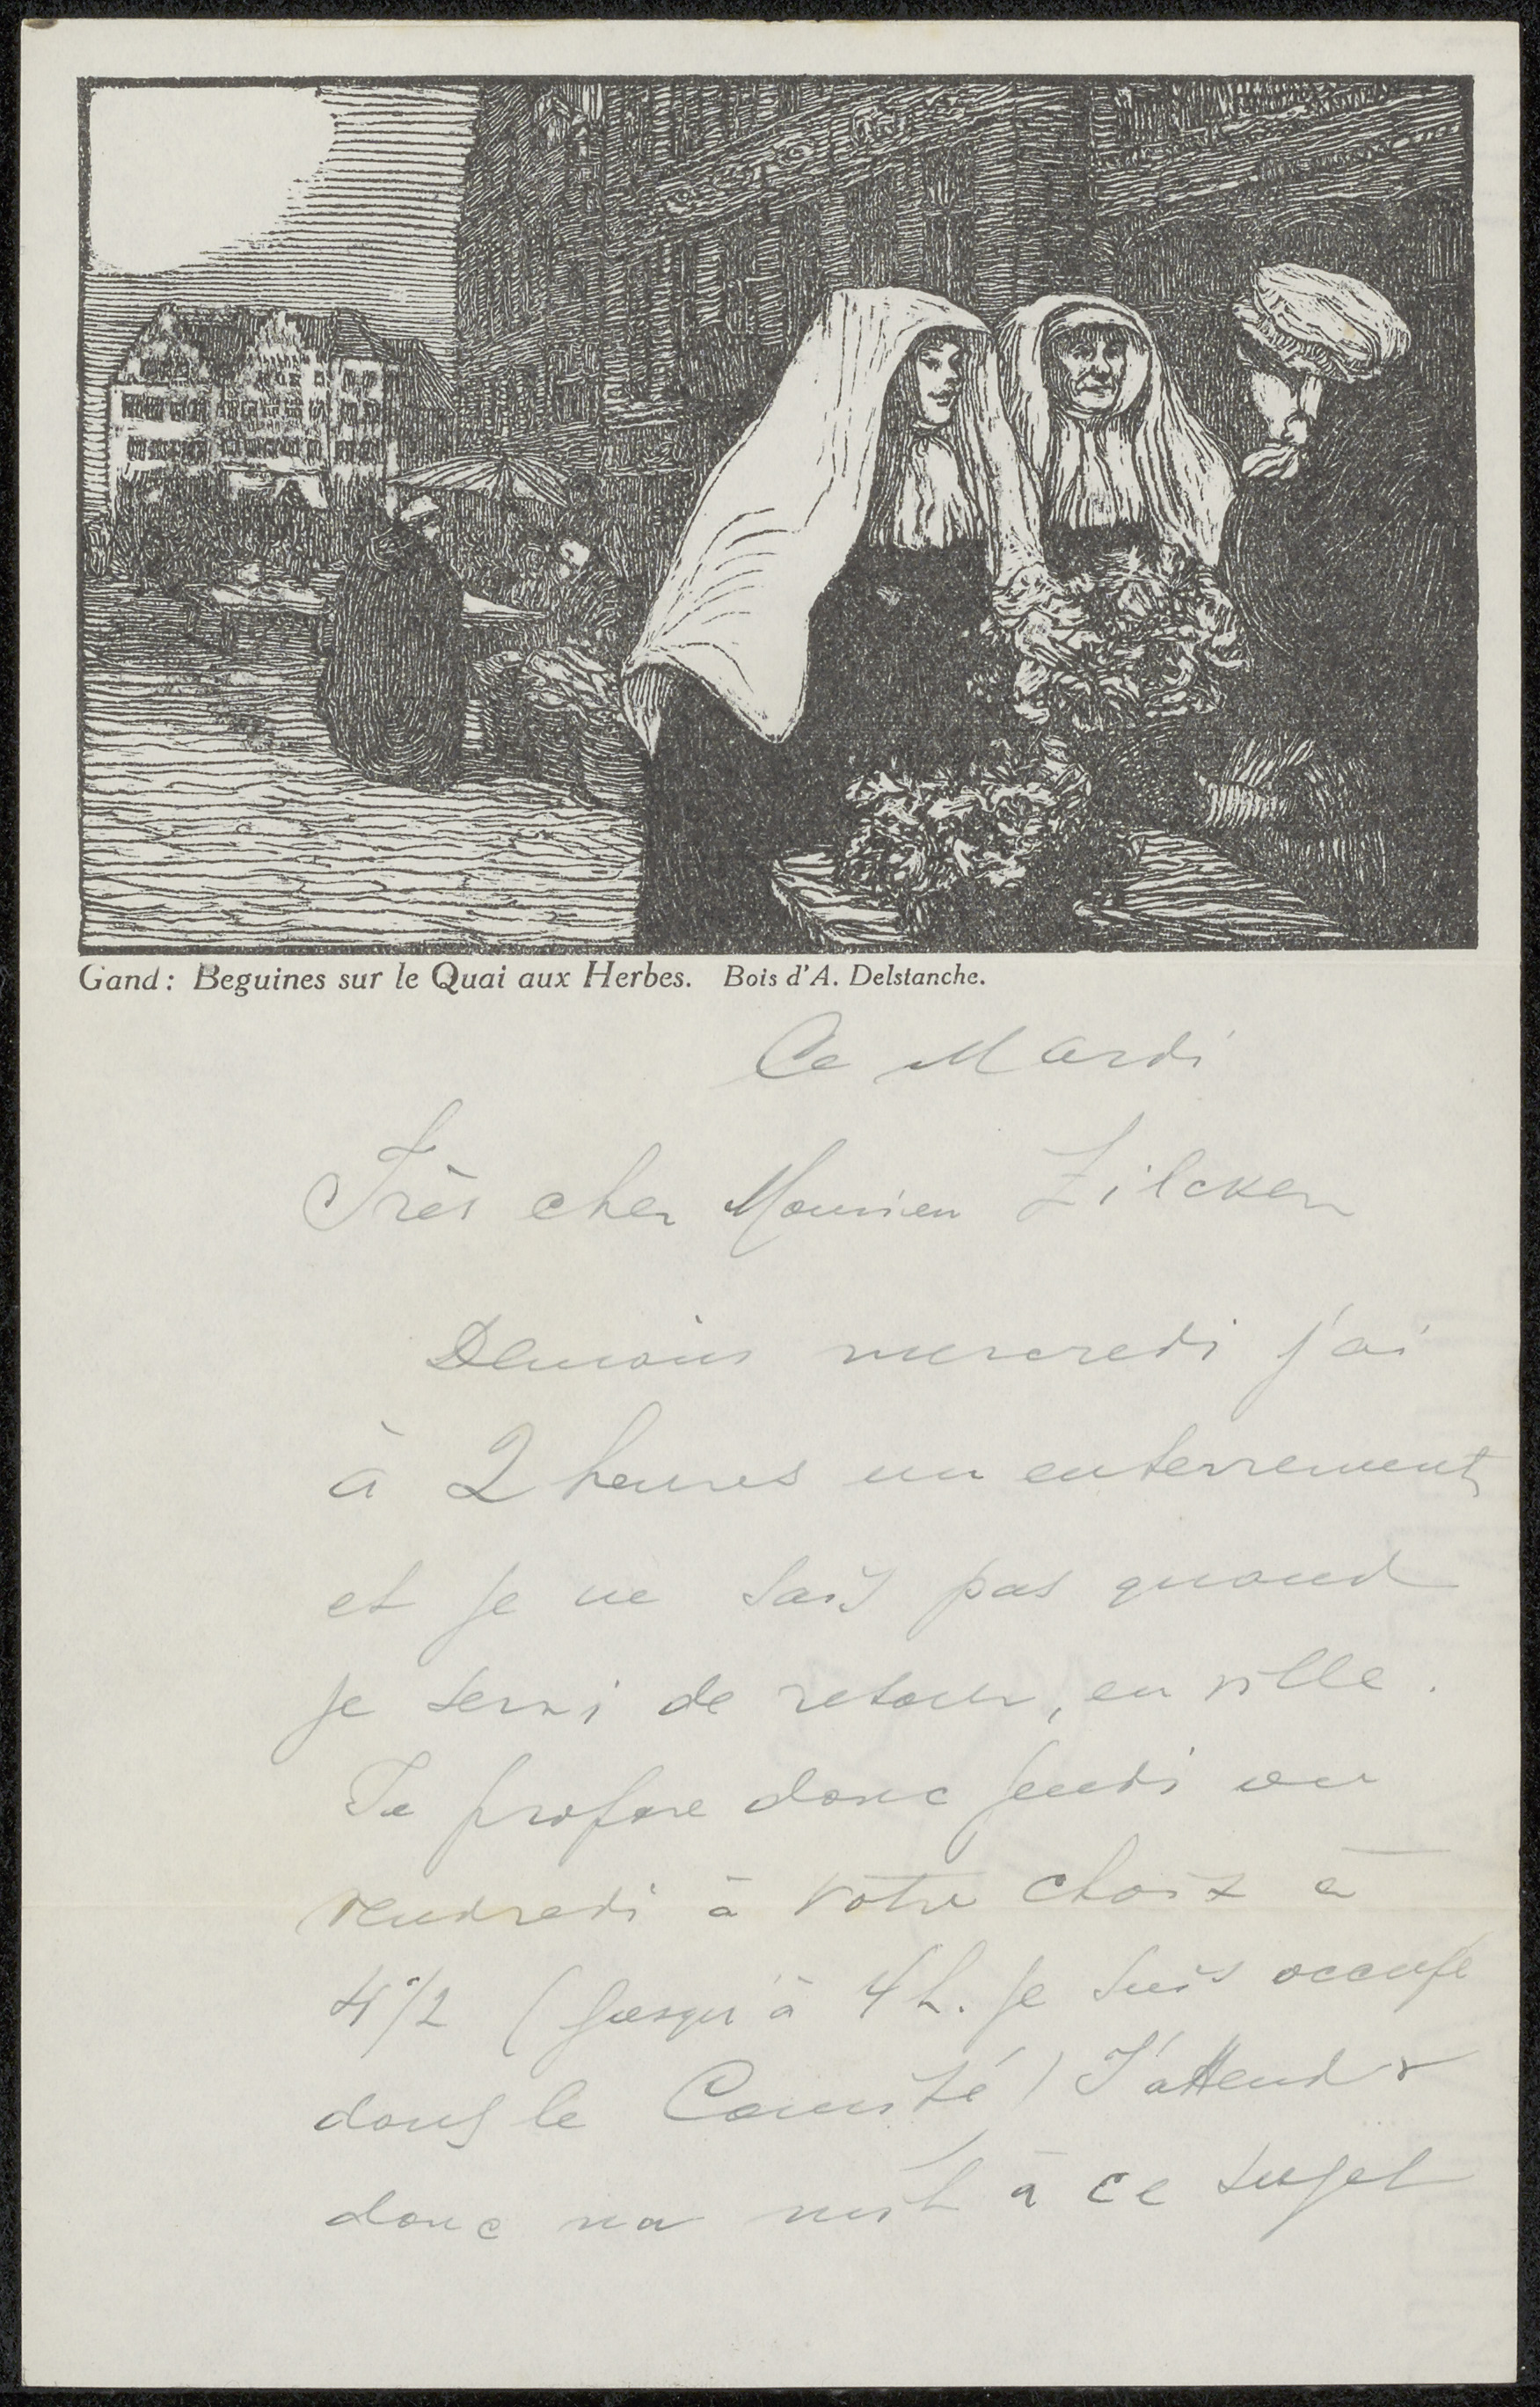 Gand: Beguines sur le Quai aux Herbes. Bois d'A. Delstanche.
Ce Mardi
Très cher Monsieur Zilcken
Demain mercredi j'ai
à 2 heures un enterrement
et je ne sais pas quand
je serai de retour, en ville.
Je propose donc jeudi ou
vendredi à votre choix à
4 1/2 (jusqu'à 4 h. je suis occupé
dans le Comité) J'attends
donc un mot à ce sujet